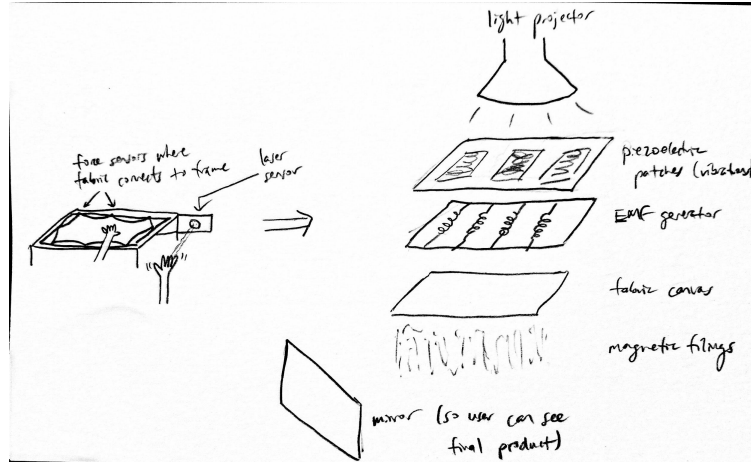 light projector
force sensors where
fabric connects to frame
laser
sensor
piezoelectric
patches (vibrations)
EMF generator
fabric canvas
magnetic filings
mirror (so user can see
final product)